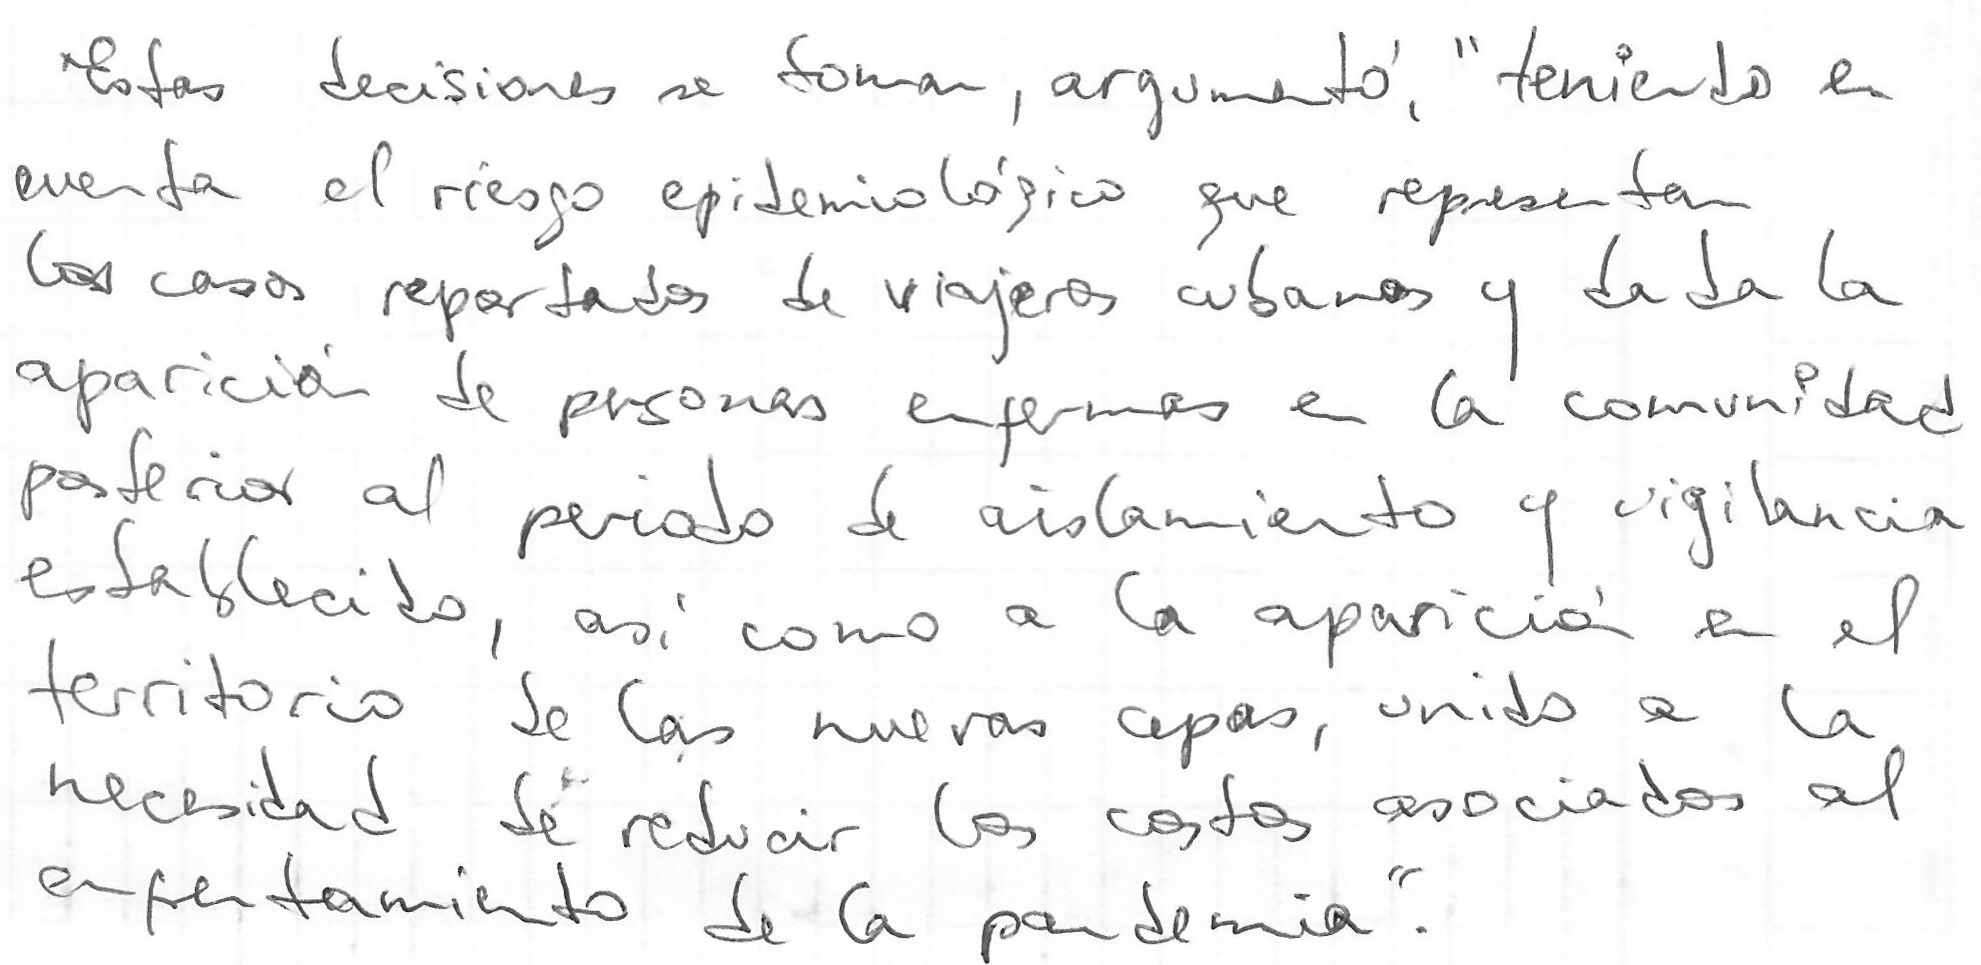 "Estas decisiones se toman, argumentó, "teniendo en
cuenta el riesgo epidemiológico que representan
los casos reportados de viajeros cubanos y dada la
aparición de personas enfermas en la comunidad
posterior al periodo de aislamiento y vigilancia
establecido, así como a la aparición en el
territorio de las nuevas cepas, unido a la
necesidad de reducir los costos asociados al
enfrentamiento de la pandemia".